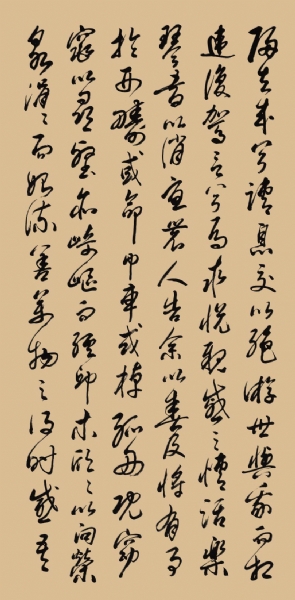 歸去來兮請息交以絕游世與我而相
違復駕言兮焉求悅親戚之情話樂
琴書以消憂農人告余以春及將有事
於西疇或命巾車或棹孤舟既窈
窕以尋壑亦崎嶇而經丘木欣々以向榮
泉涓々而始流善萬物之得時感吾